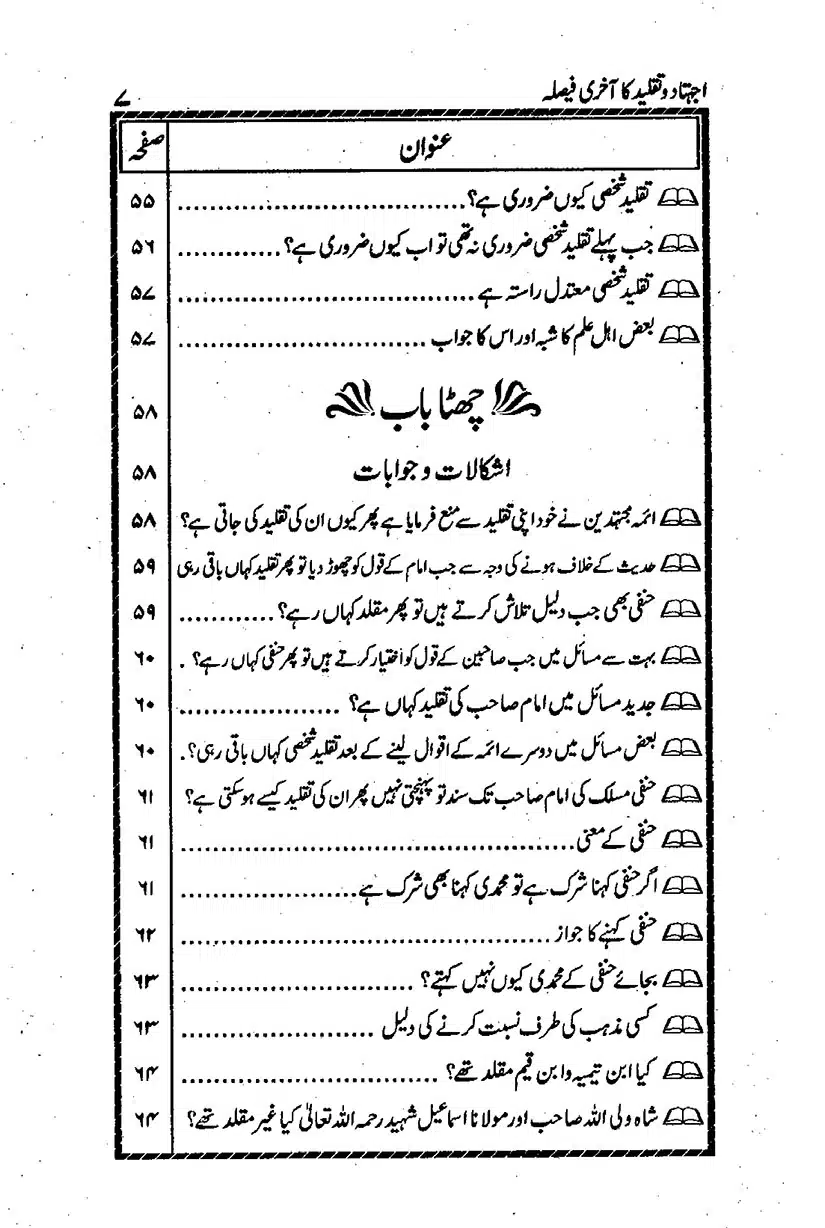 اجتہاد و تقلید کا آخری فیصلہ ۷
عنوان صفحہ
تقلید شخصی کیوں ضروری ہے؟ .................................... ۵۵
جب پہلے تقلید شخصی ضروری نہ تھی تو اب کیوں ضروری ہے؟ ............. ۵۶
تقلید شخصی معتدل راستہ ہے ..................................... ۵۷
بعض اہل علم کا شبہ اور اس کا جواب ............................... ۵۷
چھٹا باب ۵۸
اشکالات و جوابات ۵۸
ائمہ مجتہدین نے خود اپنی تقلید سے منع فرمایا ہے پھر کیوں ان کی تقلید کی جاتی ہے؟ ۵۸
حدیث کے خلاف ہونے کی وجہ سے جب امام کے قول کو چھوڑ دیا تو پھر تقلید کہاں باقی رہی ۵۹
حنفی بھی جب دلیل تلاش کرتے ہیں تو پھر مقلد کہاں رہے؟ ............ ۵۹
بہت سے مسائل میں جب صاحبین کے قول کو اختیار کرتے ہیں تو پھر حنفی کہاں رہے؟ . ۶۰
جدید مسائل میں امام صاحب کی تقلید کہاں ہے؟ .................... ۶۰
بعض مسائل میں دوسرے ائمہ کے اقوال لینے کے بعد تقلید شخصی کہاں باقی رہی؟ . ۶۰
حنفی مسلک کی امام صاحب تک سند تو پہنچتی نہیں پھر ان کی تقلید کیسے ہو سکتی ہے؟ ۶۱
حنفی کے معنی ................................................. ۶۱
اگر حنفی کہنا شرک ہے تو محمدی کہنا بھی شرک ہے ...................... ۶۱
حنفی کہنے کا جواز .............................................. ۶۲
بجائے حنفی کے محمدی کیوں نہیں کہتے؟ ............................. ۶۳
کسی مذہب کی طرف نسبت کرنے کی دلیل ........................ ۶۳
کیا ابن تیمیہ و ابن قیم مقلد تھے؟ ................................ ۶۴
شاہ ولی اللہ صاحب اور مولانا اسماعیل شہید رحمہ اللہ تعالیٰ کیا غیر مقلد تھے؟ ۶۴